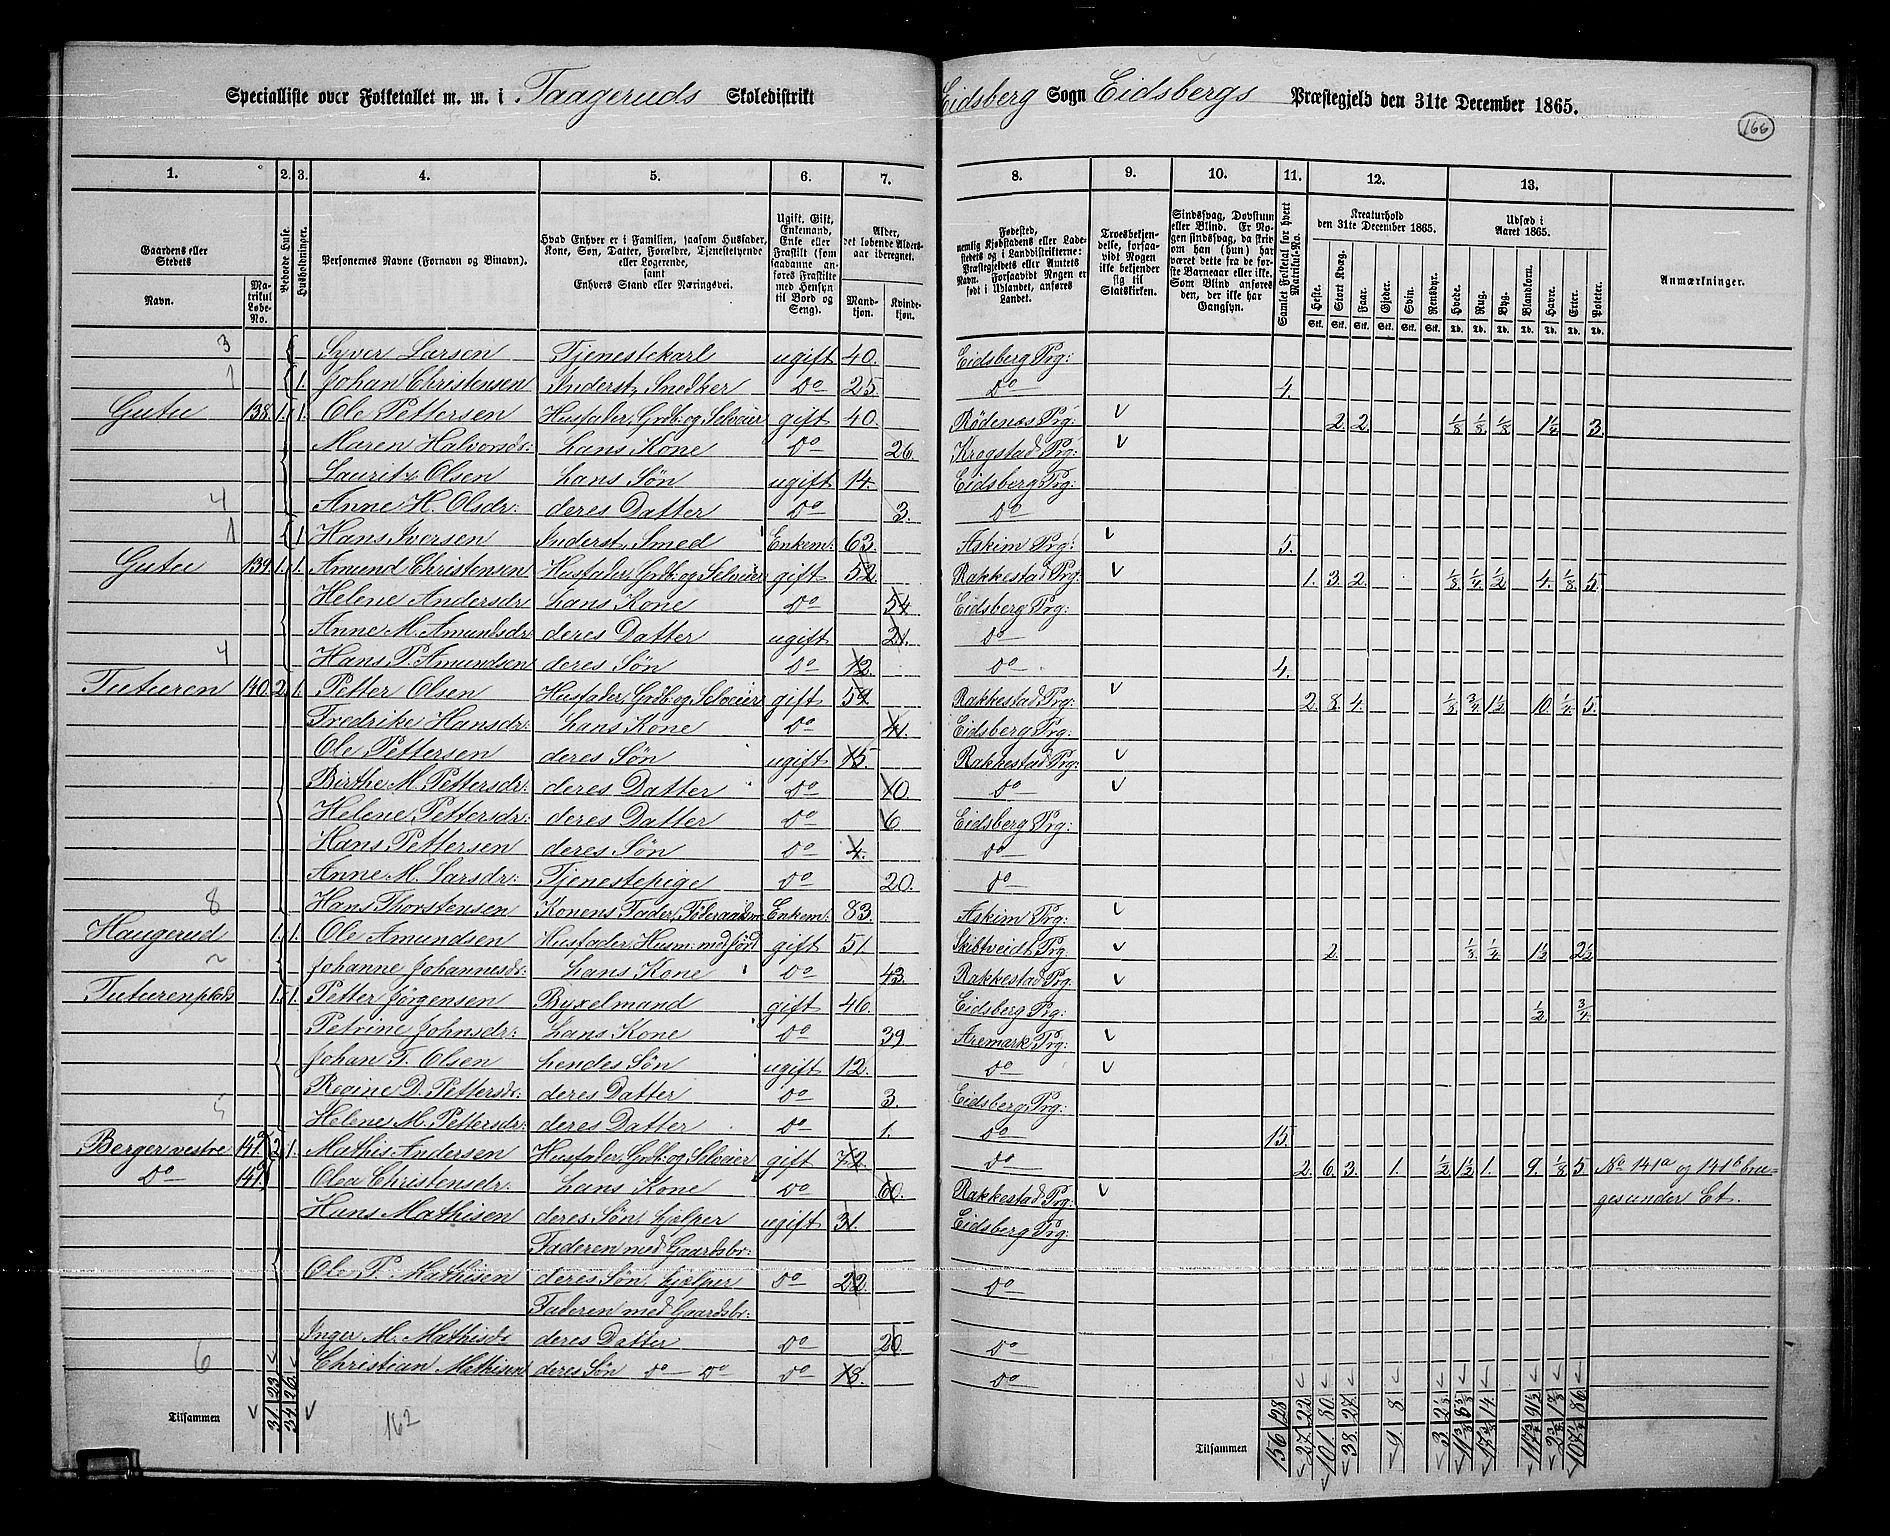 Specialliste over Folketallet m. m. i Taageruds Skoledistrikt Eidsberg Sogn Eidsbergs Præstegjeld den 31te December 1865.
166
1. 2. 3. 4. 5. 6. 7. 8. 9. 10. 11. 12. 13.
Gaardens eller Stedets
Navn.
Matrikul Løbe-No.
Beboede Huse.
Husholdninger.
Personernes Navne (Fornavn og Binavn).
Hvad Enhver er i Familien, saasom Husfader, Kone, Søn, Datter, Forældre, Tjenestetyende eller Logerende, samt Enhvers Stand eller Næringsvei.
Ugift, Gift, Enkemand, Enke eller Fraskilt (som saadanne anføres Fraskilte med Hensyn til Bord og Seng).
Alder, det løbende Aldersaar iberegnet.
Mandkjøn. Kvindekjøn.
Fødested, nemlig Kjøbstadens eller Ladestedets og i Landdistrikterne: Præstegjeldets eller Amtets Navn. Forsaavidt Nogen er født i Udlandet, anføres Landet.
Troesbekjendelse, forsaavidt Nogen ikke bekjender sig til Statskirken.
Sindssvag, Døvstum eller Blind. Er Nogen sindssvag, da skriv om han (hun) har været dette fra de første Barneaar eller ikke. Som Blind anføres den, der ikke har Gangsyn.
Samlet Folketal for hvert Matrikul-No.
Kreaturhold den 31te December 1865.
Heste. Stort Kvæg. Faar. Gjeder. Svin. Rensdyr.
Udsæd i Aaret 1865.
Hvede. Rug. Byg. Blandkorn. Havre. Erter. Poteter.
Anmærkninger.
3 Syver Larsen Tjenestekarl ugift 40. Eidsberg Prg:
1 1. Johan Christensen Inderst, Snedker Do 25 Do 4.
Gutu 138. 1. 1. Ole Pettersen Husfader, Grdb: og Selveier gift 40. Rödenæs Prg: 2. 2. 1/8 1/8 1/8 1 1/4 3.
Maren Halvorsdr: hans Kone Do 26. Krogstad Prg:
Lauritz Olsen hans Søn ugift 14. Eidsberg Prg:
4 Anne H. Olsdr: deres Datter Do 3. Do
1 1 Hans Iversen Inderst, Smed Enkem: 63. Askim Prg: 5.
Gutu 139. 1. 1. Amund Christensen Husfader, Grdb: og Selveier gift 52. Rakkestad Prg: 1. 3. 2. 1/8 1/4 1/2 4. 1/8 5.
Helene Andersdr: hans Kone Do 54 Eidsberg Prg:
Anne M. Amundsdr: deres Datter ugift 21. Do
4 Hans P. Amundsen deres Søn Do 12. Do 4.
Tuturen 140. 2. 1. Petter Olsen Husfader, Grdb: og Selveier gift 59 Rakkestad Prg: 2. 8. 4. 1/8 3/4 1 1/2 10 1/4 5.
Fredrike Hansdr: hans Kone Do 41. Eidsberg Prg:
Ole Pettersen deres Søn ugift 15. Rakkestad Prg:
Birthe M. Pettersdr: deres Datter Do 10 Do
Helene Pettersdr: deres Datter Do 6 Eidsberg Prg:
Hans Pettersen deres Søn Do 4. Do
Anne M. Larsdr: Tjenestepige Do 20. Do
8 Hans Thorstensen Konens Fader, Føderaadsm. Enkem: 83. Askim Prg:
Haugerud 1. 1. Ole Amundsen Husfader, Husm: med Jord gift 51. Skibtveidt Prg: 2. 1/8 1/4 1 1/2 2 1/2
Johanne Johannesdr: hans Kone Do 43. Rakkestad Prg:
Tuturenplads 1. 1. Petter Jörgensen Byxelmand gift 46. Eidsberg Prg: 1/2 3/4
Petrine Johnsdr: hans Kone Do 39 Aremark Prg:
Johan T. Olsen hendes Søn ugift 12. Do
Regine D. Pettersdr: deres Datter Do 3. Eidsberg Prg:
5 Helene M. Pettersdr: deres Datter Do 1. Do 15.
Berger vestre 141a 2. 1. Mathis Andersen Husfader, Grdb: og Selveier gift 72 Do 2. 6. 3. 1. 1/2 1 1/2 1. 9. 1/8 5 No 141a og 141b bru-
Do 141b Olea Christensdr: hans Kone Do 60. Rakkestad Prg: ges under Et.
Hans Mathisen deres Søn, hjelper ugift 31. Eidsberg Prg:
Faderen med Gaardsbr:
Ole P. Mathisen deres Søn, hjelper Do 22. Do
Faderen med Gaardsbr:
Inger M. Mathisdr deres Datter Do 20 Do
6 Christian Mathisen deres Søn Do Do Do 18. Do
Tilsammen 31. 23 34. 26. 162
Tilsammen 156 128 27. 22 101. 80. 38. 27. 9. 8.